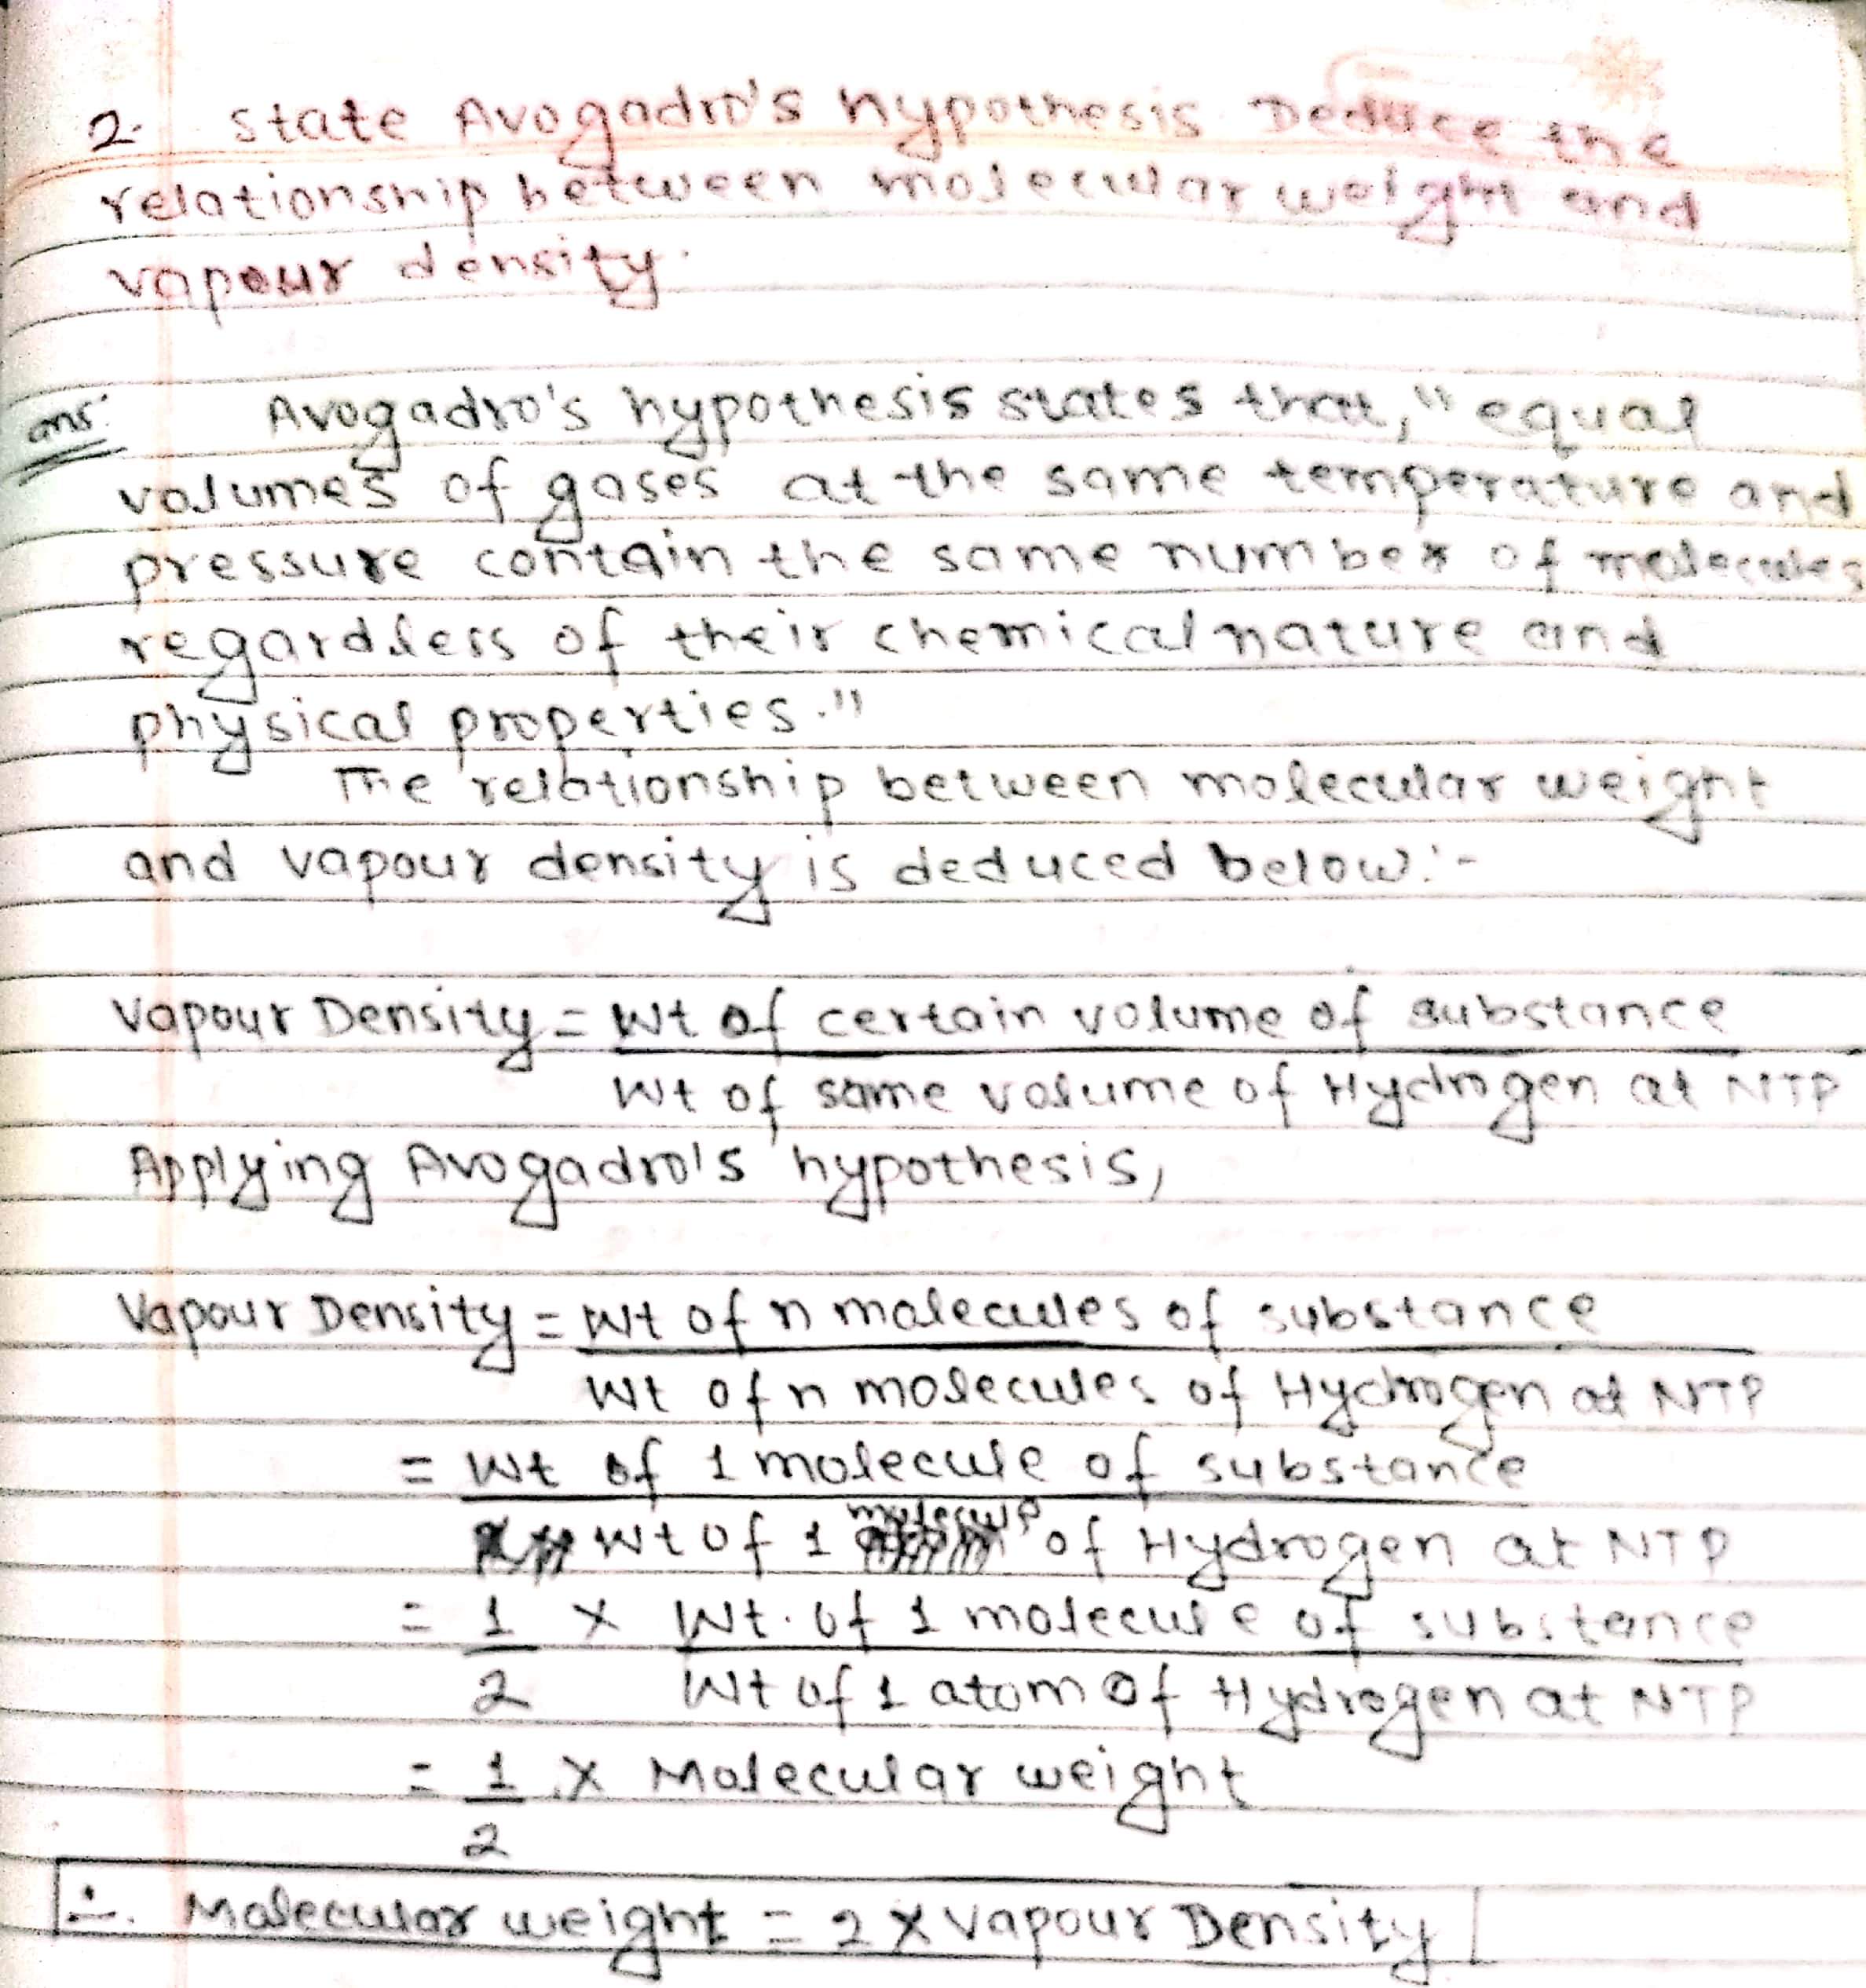 2. State Avogadro's hypothesis. Deduce the
relationship between molecular weight and
vapour density.
ans. Avogadro's hypothesis states that, "equal
volumes of gases at the same temperature and
pressure contain the same number of molecules
regardless of their chemical nature and
physical properties."
The relationship between molecular weight
and vapour density is deduced below:-
Vapour Density = Wt of certain volume of substance
Wt of same volume of Hydrogen at NTP
Applying Avogadro's hypothesis,
Vapour Density = Wt of n molecules of substance
Wt of n molecules of Hydrogen at NTP
= Wt of 1 molecule of substance
Wt of 1 molecule of Hydrogen at NTP
= 1 × Wt. of 1 molecule of substance
2 Wt of 1 atom of Hydrogen at NTP
= 1 × Molecular weight
2
∴ Molecular weight = 2 × Vapour Density